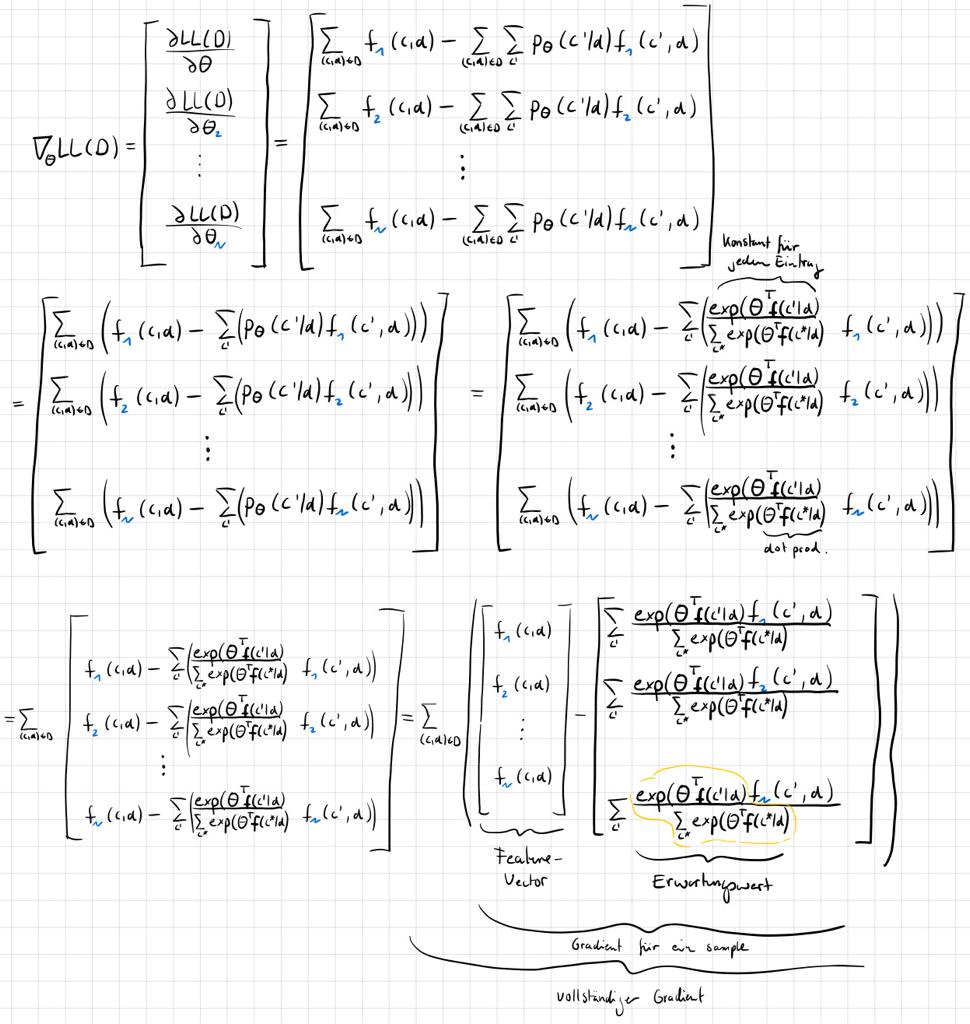 ∇_θ LL(D) = [ ∂LL(D)/∂θ ; ∂LL(D)/∂θ_2 ; ⋮ ; ∂LL(D)/∂θ_N ] = [ Σ_{(c,d)∈D} f_1(c,d) − Σ_{(c,d)∈D} Σ_{c'} p_θ(c'|d) f_1(c',d) ; Σ_{(c,d)∈D} f_2(c,d) − Σ_{(c,d)∈D} Σ_{c'} p_θ(c'|d) f_2(c',d) ; ⋮ ; Σ_{(c,d)∈D} f_N(c,d) − Σ_{(c,d)∈D} Σ_{c'} p_θ(c'|d) f_N(c',d) ]
konstant für
jeden Eintrag
= [ Σ_{(c,d)∈D} (f_1(c,d) − Σ_{c'} (p_θ(c'|d) f_1(c',d))) ; Σ_{(c,d)∈D} (f_2(c,d) − Σ_{c'} (p_θ(c'|d) f_2(c',d))) ; ⋮ ; Σ_{(c,d)∈D} (f_N(c,d) − Σ_{c'} (p_θ(c'|d) f_N(c',d))) ] = [ Σ_{(c,d)∈D} (f_1(c,d) − Σ_{c'} (exp(θ^T f(c'|d) / Σ_{c*} exp(θ^T f(c*|d) f_1(c',d))) ; Σ_{(c,d)∈D} (f_2(c,d) − Σ_{c'} (exp(θ^T f(c'|d) / Σ_{c*} exp(θ^T f(c*|d) f_2(c',d))) ; ⋮ ; Σ_{(c,d)∈D} (f_N(c,d) − Σ_{c'} (exp(θ^T f(c'|d) / Σ_{c*} exp(θ^T f(c*|d) f_N(c',d))) ]
dot prod.
= Σ_{(c,d)∈D} [ f_1(c,d) − Σ_{c'} (exp(θ^T f(c'|d) / Σ_{c*} exp(θ^T f(c*|d) f_1(c',d)) ; f_2(c,d) − Σ_{c'} (exp(θ^T f(c'|d) / Σ_{c*} exp(θ^T f(c*|d) f_2(c',d)) ; ⋮ ; f_N(c,d) − Σ_{c'} (exp(θ^T f(c'|d) / Σ_{c*} exp(θ^T f(c*|d) f_N(c',d)) ] = Σ_{(c,d)∈D} ( [ f_1(c,d) ; f_2(c,d) ; ⋮ ; f_N(c,d) ] − [ Σ_{c'} exp(θ^T f(c'|d) f_1(c',d) / Σ_{c*} exp(θ^T f(c*|d) ; Σ_{c'} exp(θ^T f(c'|d) f_2(c',d) / Σ_{c*} exp(θ^T f(c*|d) ; Σ_{c'} exp(θ^T f(c'|d) f_N(c',d) / Σ_{c*} exp(θ^T f(c*|d) ] )
Feature-
Vector
Erwartungswert
Gradient für ein sample
vollständiger Gradient